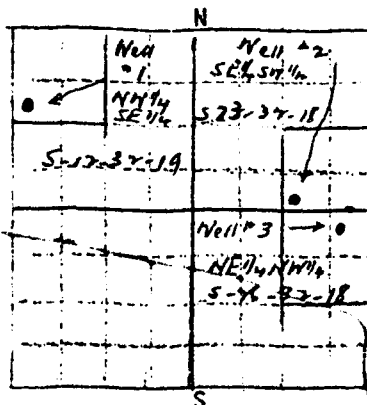 N
Well
#1
NW1/4
SE1/4
S-12-32-19
Well #2
SE1/4 SW1/4
S 23-32-18
Well #3
NE1/4 NW1/4
S-26-32-18
S